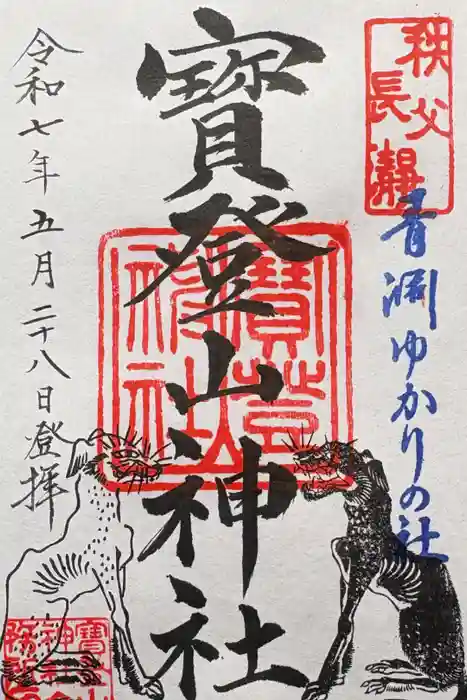 秩父
長瀞
青淵ゆかりの社
寳登山神社
令和七年五月二十八日登拝
寳登山
神社